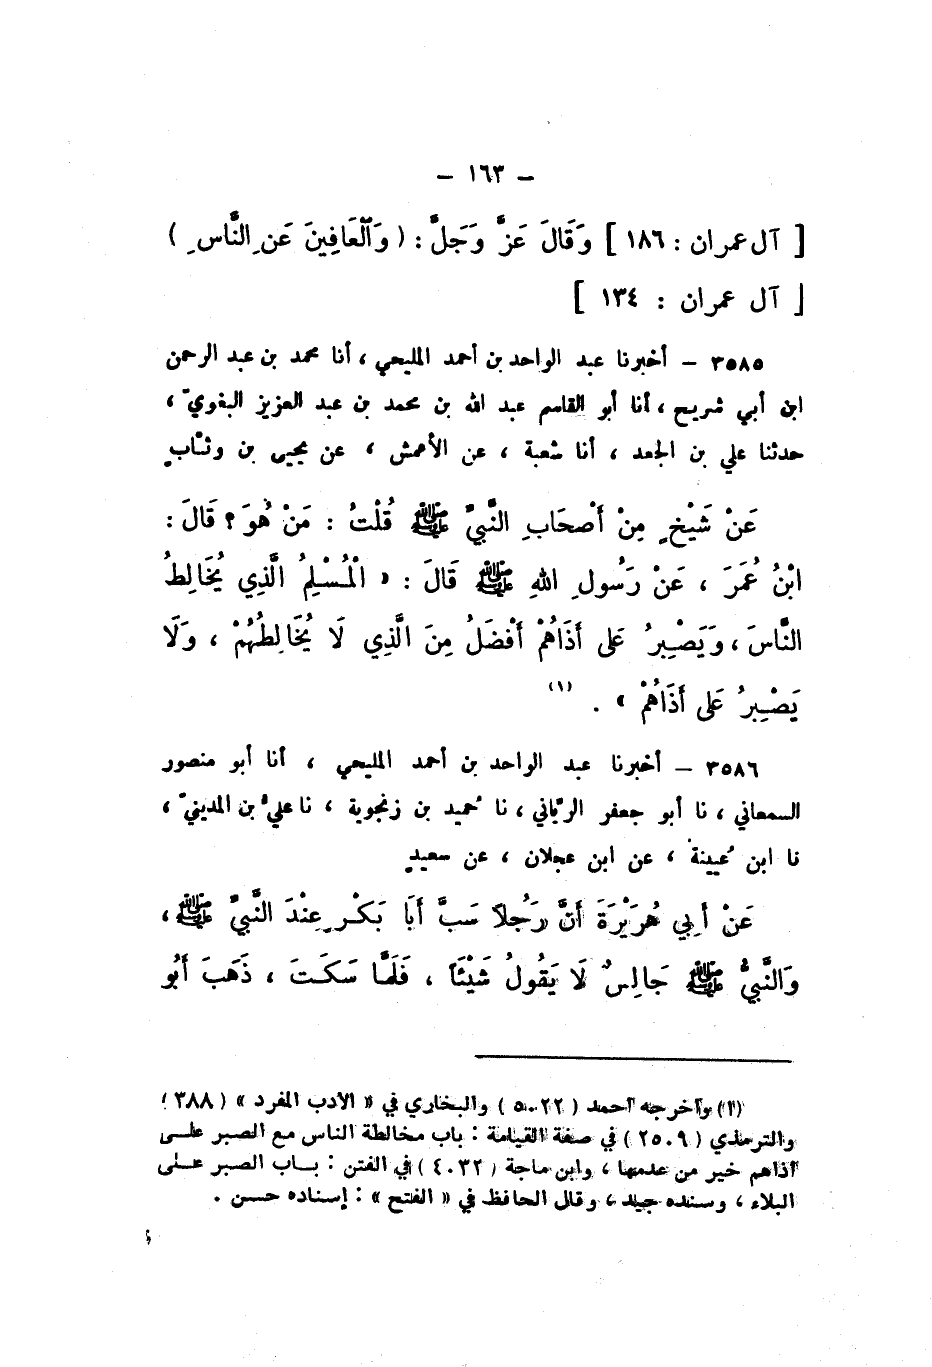 – ١٦٣ –
[ آل عمران : ١٨٦ ] وَقَالَ عَزَّ وَجَلَّ : ( وَٱلْعَافِينَ عَنِ النَّاسِ )
[ آل عمران : ١٣٤ ]
٣٥٨٥ – أخبرنا عبد الواحد بن أحمد المليحي ، أنا محمد بن عبد الرحمن
ابن أبي شريح ، أنا أبو القاسم عبد الله بن محمد بن عبد العزيز البغويّ ،
حدثنا علي بن الجعد ، أنا شعبة ، عن الأعمش ، عن يحيى بن وثّابٍ
عَنْ شَيْخٍ مِنْ أَصْحَابِ النَّبِيِّ ﷺ قُلْتُ : مَنْ هُوَ ؟ قَالَ :
ابْنُ عُمَرَ ، عَنْ رَسُولِ اللهِ ﷺ قَالَ : « الْمُسْلِمُ الَّذِي يُخَالِطُ
النَّاسَ ، وَيَصْبِرُ عَلَى أَذَاهُمْ أَفْضَلُ مِنَ الَّذِي لَا يُخَالِطُهُمْ ، وَلَا
يَصْبِرُ عَلَى أَذَاهُمْ » . (١)
٣٥٨٦ – أخبرنا عبد الواحد بن أحمد المليحي ، أنا أبو منصور
السمعاني ، نا أبو جعفر الرّياني ، نا حُميد بن زنجوية ، نا عليُّ بن المدينيّ ،
نا ابن عُيينة ، عن ابن عجلان ، عن سعيدٍ
عَنْ أَبِي هُرَيْرَةَ أَنَّ رَجُلاً سَبَّ أَبَا بَكْرٍ عِنْدَ النَّبِيِّ ﷺ ،
وَالنَّبِيُّ ﷺ جَالِسٌ لَا يَقُولُ شَيْئاً ، فَلَمَّا سَكَتَ ، ذَهَبَ أَبُو
(١) وأخرجه أحمد ( ٥٠٢٢ ) والبخاري في « الأدب المفرد » ( ٣٨٨ )
والترمذي ( ٢٥٠٩ ) في صفة القيامة : باب مخالطة الناس مع الصبر على
أذاهم خير من عدمها ، وابن ماجة ( ٤٠٣٢ ) في الفتن : باب الصبر على
البلاء ، وسنده جيد ، وقال الحافظ في « الفتح » : إسناده حسن .